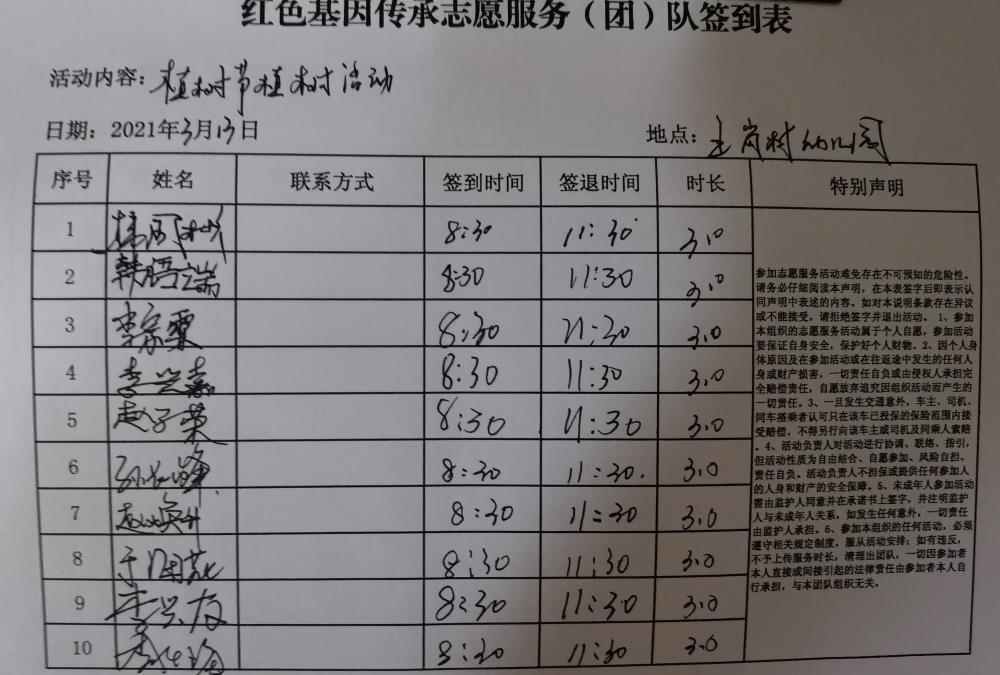 红色基因传承志愿服务（团）队签到表
活动内容：植树节植树活动
日期：2021年3月13日 地点：王岗村幼儿园
序号 姓名 联系方式 签到时间 签退时间 时长 特别声明
1 8:30 11:30 3.0
2 韩语端 8:30 11:30 3.0
3 李家栗 8:30 11:30 3.0
4 李兴嘉 8:30 11:30 3.0
5 赵子荣 8:30 11:30 3.0
6 8:30 11:30 3.0
7 8:30 11:30 3.0
8 8:30 11:30 3.0
9 李兴友 8:30 11:30 3.0
10 8:30 11:30 3.0
参加志愿服务活动难免存在不可预知的危险性。
请务必仔细阅读本声明，在本表签字后即表示认
同声明中表述的内容。如对本说明条款存在异议
或不能接受，请拒绝签字并退出活动。1、参加
本组织的志愿服务活动属于个人自愿，参加活动
要保证自身安全，保护好个人财物。2、因个人身
体原因及在参加活动或在往返途中发生的任何人
身或财产损害，一切责任自负或由侵权人承担完
全赔偿责任，自愿放弃追究因组织活动而产生的
一切责任。3、一旦发生交通意外，车主、司机、
同车搭乘者认可只在该车已投保的保险范围内接
受赔偿，不得另行向该车主或司机及同乘人索赔
。4、活动负责人对活动进行协调、联络、指引，
但活动性质为自由结合、自愿参加、风险自担、
责任自负。活动负责人不担保或提供任何参加人
的人身和财产的安全保障。5、未成年人参加活动
需由监护人同意并在承诺书上签字，并注明监护
人与未成年人关系，如发生任何意外，一切责任
由监护人承担。6、参加本组织的任何活动，必须
遵守相关规定制度，服从活动安排；如有违反，
不予上传服务时长，清理出团队，一切因参加者
本人直接或间接引起的法律责任由参加者本人自
行承担，与本团队组织无关。